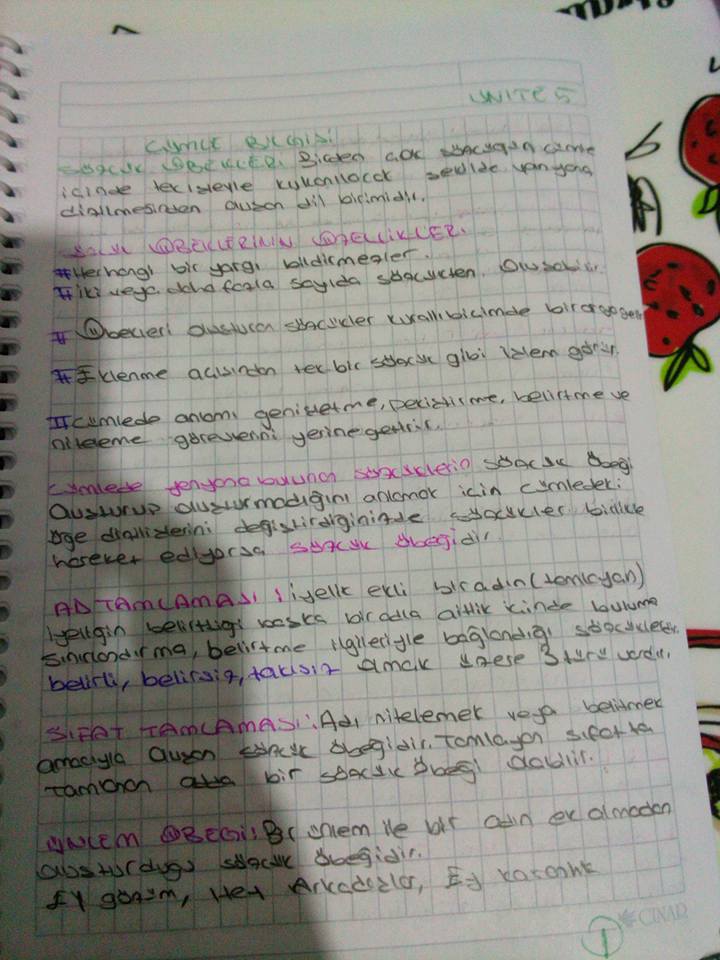 ÜNİTE 5
CÜMLE BİLGİSİ
SÖZCÜK ÖBEKLERİ: Birden çok sözcüğün cümle
içinde ilkeleriyle kalıplaşacak şekilde yan yana
dizilmesinden oluşan dil birimidir.
SÖZCÜK ÖBEKLERİNİN ÖZELLİKLERİ
# Herhangi bir yargı bildirmezler.
# iki veya daha fazla sayıda sözcükten oluşabilir.
# Öbekleri oluşturan sözcükler kurallı biçimde bir araya gelir
# Eklenme açısından tek bir sözcük gibi işlem görür.
# Cümlede anlamı genişletme, pekiştirme, belirtme ve
niteleme görevlerini yerine getirir.
Cümlede yanyana bulunan sözcüklerin sözcük öbeği
oluşturup oluşturmadığını anlamak için cümledeki
öğe dizilişlerini değiştirdiğinizde sözcükler birlikte
hareket ediyorsa sözcük öbeğidir.
AD TAMLAMASI: iyelik ekli bir adın (tamlayan)
iyeliğin belirttiği başka bir adla aitlik içinde bulunma
sınırlandırma, belirtme ilgileriyle bağlandığı sözcüklerdir.
belirli, belirsiz, takısız olmak üzere 3 türü vardır.
SIFAT TAMLAMASI: Adı nitelemek veya belirtmek
amacıyla oluşan sözcük öbeğidir. Tamlayan sıfatta
tamlanan bir sözcük öbeği olabilir.
ÜNLEM ÖBEĞİ: Bir ünlem ile bir adın ek almadan
oluşturduğu sözcük öbeğidir.
Ey gözüm, Hey Arkadaşlar, Ey karanlık
ÇINAR
1